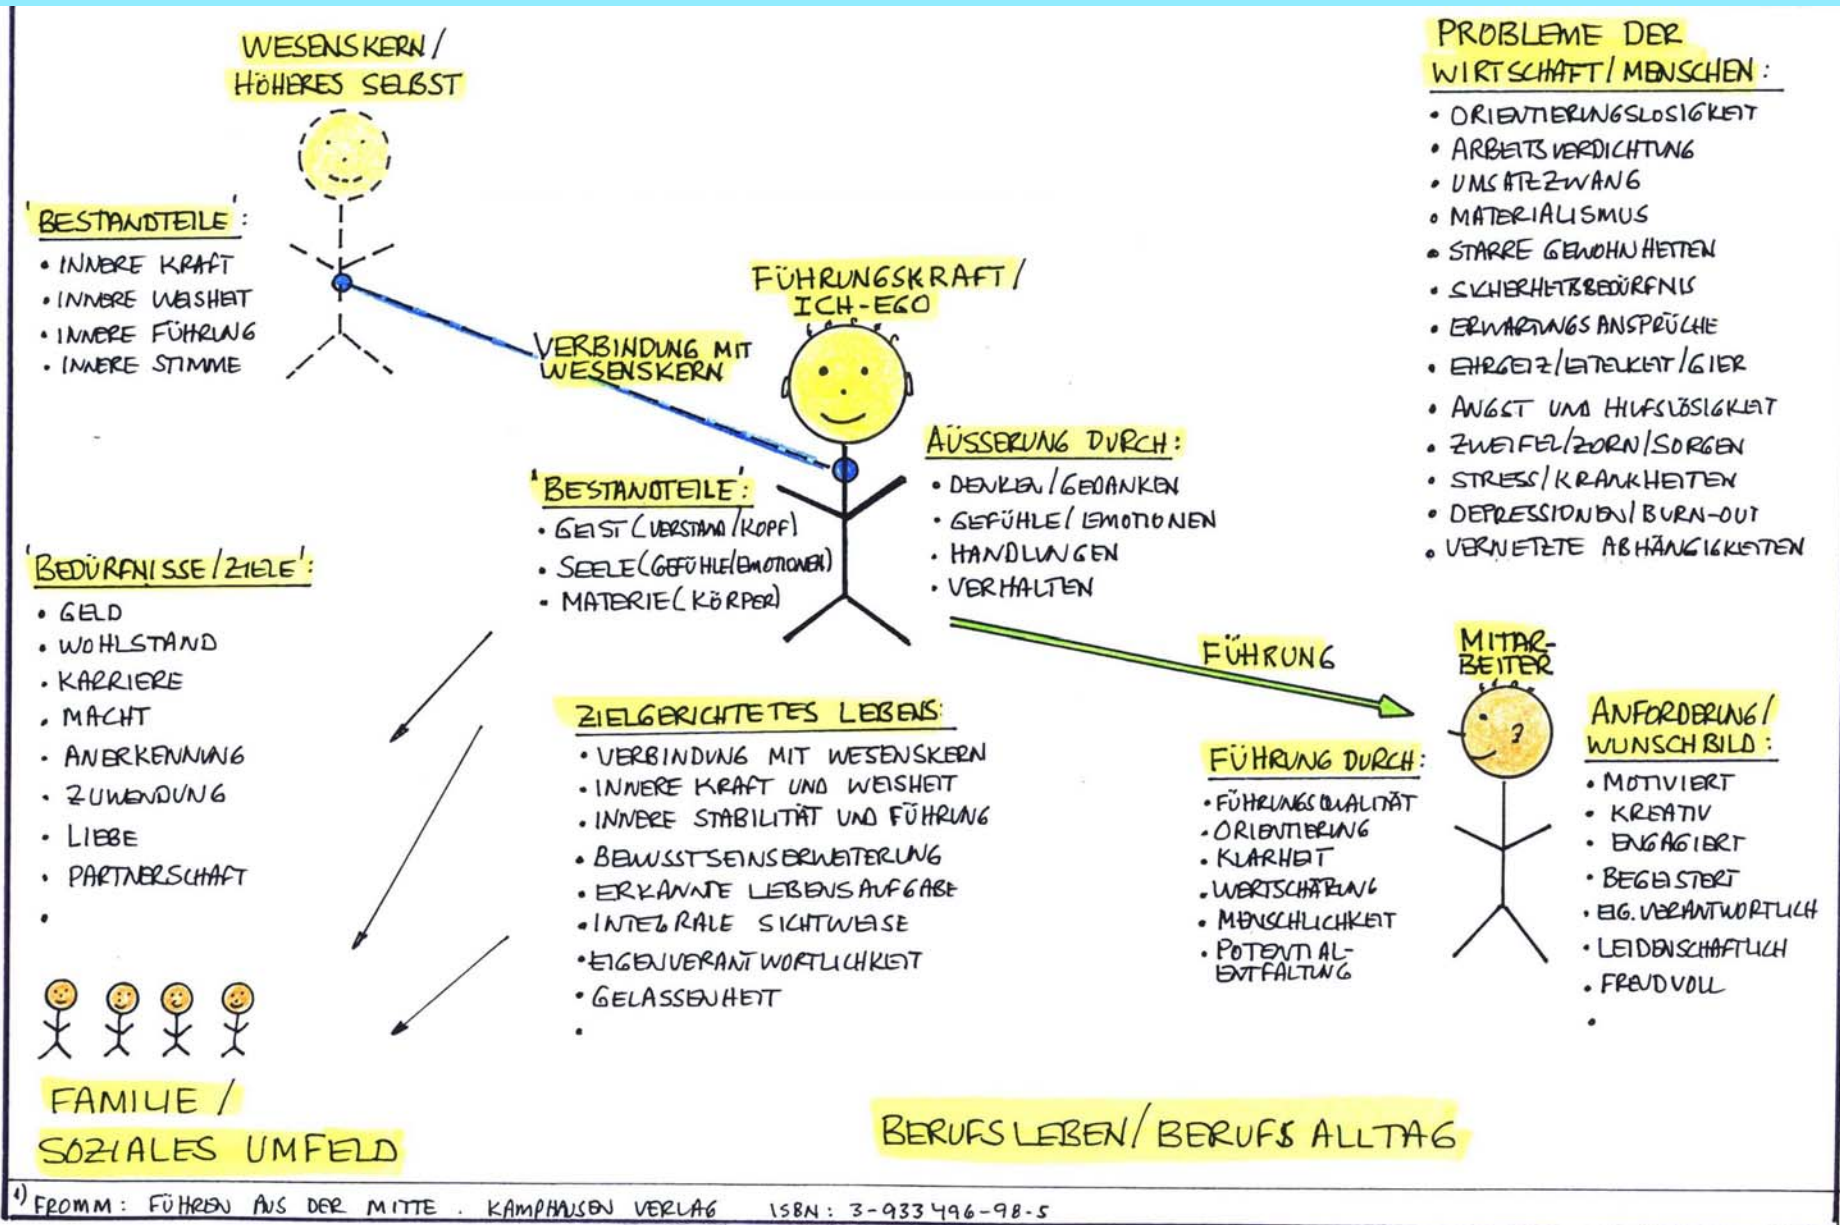 WESENSKERN /
HÖHERES SELBST
'BESTANDTEILE':
• INNERE KRAFT
• INNERE WEISHEIT
• INNERE FÜHRUNG
• INNERE STIMME
VERBINDUNG MIT
WESENSKERN
FÜHRUNGSKRAFT /
ICH-EGO
'BESTANDTEILE':
• GEIST (VERSTAND/KOPF)
• SEELE (GEFÜHLE/EMOTIONEN)
• MATERIE (KÖRPER)
ÄUSSERUNG DURCH:
• DENKEN/GEDANKEN
• GEFÜHLE/EMOTIONEN
• HANDLUNGEN
• VERHALTEN
PROBLEME DER
WIRTSCHAFT/MENSCHEN:
• ORIENTIERUNGSLOSIGKEIT
• ARBEITSVERDICHTUNG
• UMSATZZWANG
• MATERIALISMUS
• STARRE GEWOHNHEITEN
• SICHERHEITSBEDÜRFNIS
• ERWARTUNGSANSPRÜCHE
• EHRGEIZ/EITELKEIT/GIER
• ANGST UND HILFSLÖSIGKEIT
• ZWEIFEL/ZORN/SORGEN
• STRESS/KRANKHEITEN
• DEPRESSIONEN/BURN-OUT
• VERNETZTE ABHÄNGIGKEITEN
'BEDÜRFNISSE/ZIELE':
• GELD
• WOHLSTAND
• KARRIERE
• MACHT
• ANERKENNUNG
• ZUWENDUNG
• LIEBE
• PARTNERSCHAFT
•
ZIELGERICHTETES LEBENS:
• VERBINDUNG MIT WESENSKERN
• INNERE KRAFT UND WEISHEIT
• INNERE STABILITÄT UND FÜHRUNG
• BEWUSSTSEINSERWEITERUNG
• ERKANNTE LEBENSAUFGABE
• INTEGRALE SICHTWEISE
• EIGENVERANTWORTLICHKEIT
• GELASSENHEIT
•
FÜHRUNG
MITAR-
BEITER
FÜHRUNG DURCH:
• FÜHRUNGSQUALITÄT
• ORIENTIERUNG
• KLARHEIT
• WERTSCHÄTZUNG
• MENSCHLICHKEIT
• POTENTIAL-
ENTFALTUNG
ANFORDERUNG/
WUNSCHBILD:
• MOTIVIERT
• KREATIV
• ENGAGIERT
• BEGEISTERT
• EIG.VERANTWORTLICH
• LEIDENSCHAFTLICH
• FREUDVOLL
•
FAMILIE /
SOZIALES UMFELD
BERUFSLEBEN/BERUFSALLTAG
1) FROMM: FÜHREN AUS DER MITTE. KAMPHAUSEN VERLAG ISBN: 3-933496-98-5